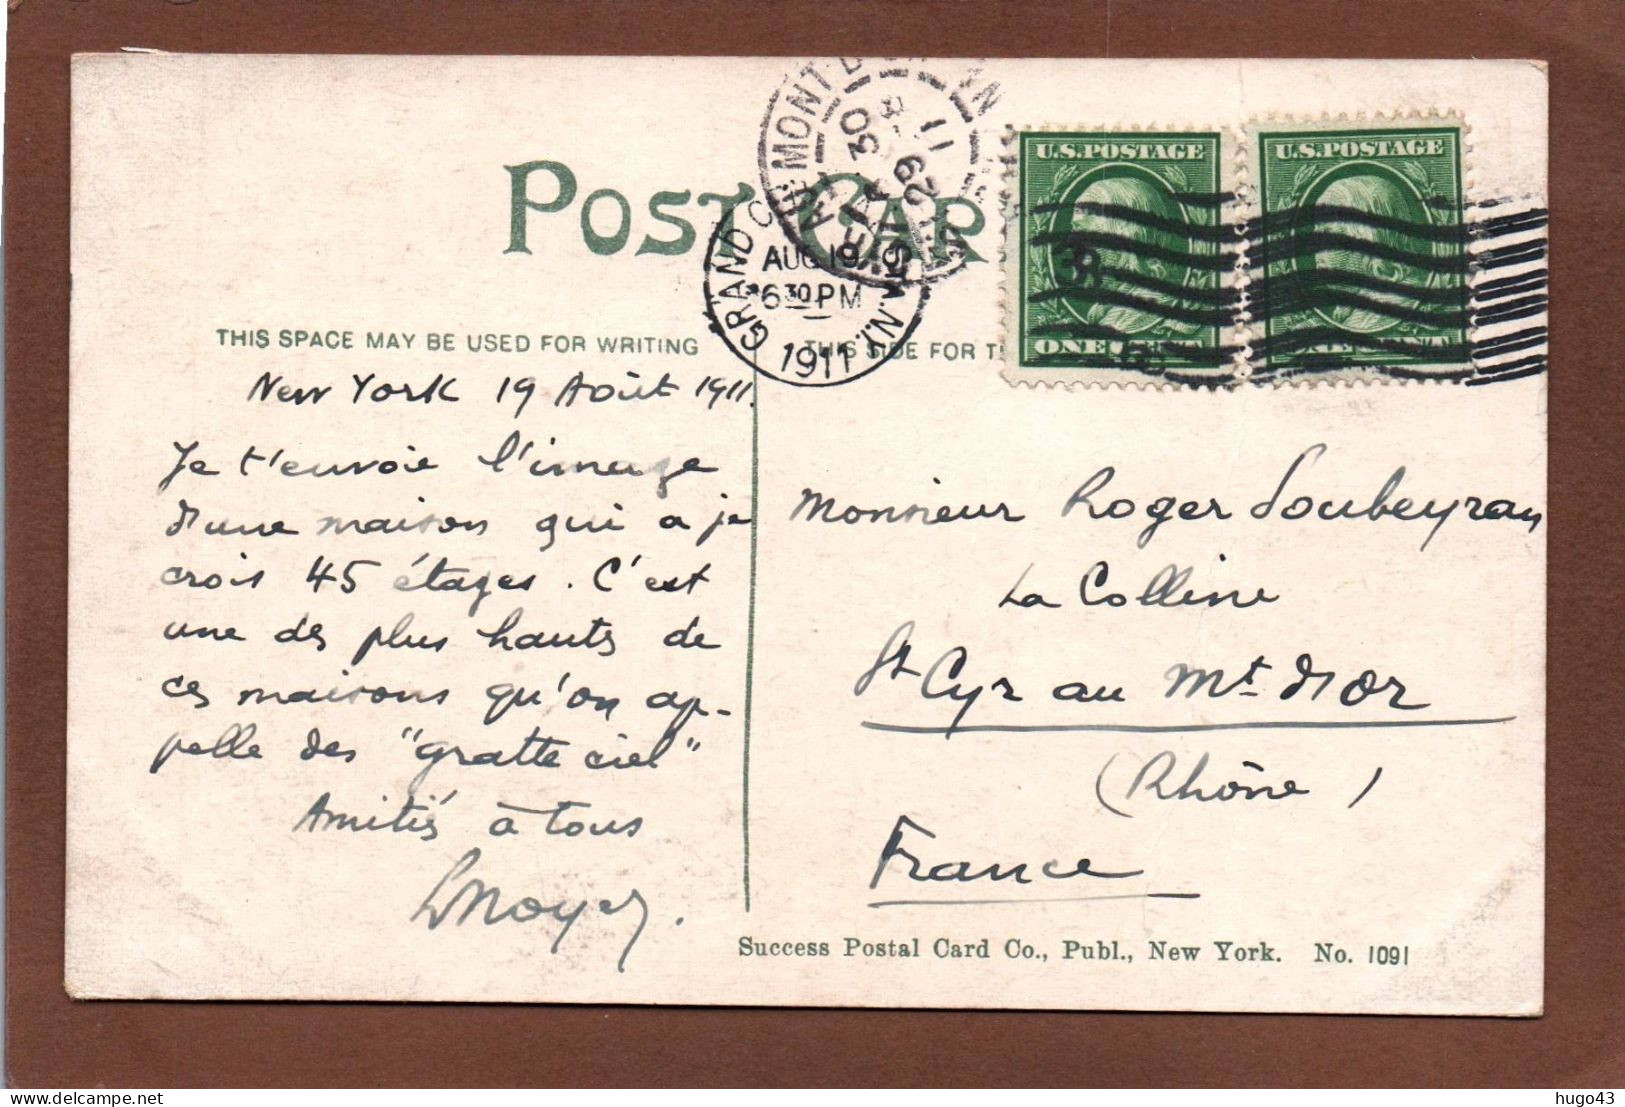 POST CAR
THIS SPACE MAY BE USED FOR WRITING
THIS SIDE FOR T
U.S.POSTAGE
ONE CENT
U.S.POSTAGE
ONE CENT
GRAND C STA. N.Y.
AUG 19
6 30 PM
1911
AU MONT D
30
29
11
New York 19 Août 1911.
Je t'envoie l'image
d'une maison qui a je
crois 45 étages. C'est
une des plus hauts de
ces maisons qu'on ap-
pelle des "gratte ciel"
Amitiés à tous
Monsieur Roger Soubeyran
La Colline
St Cyr au Mt d'Or
(Rhône)
France
Success Postal Card Co., Publ., New York. No. 1091
hugo43